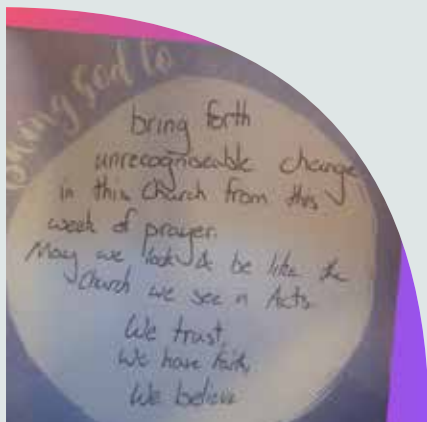 God to
bring forth
unrecogniseable change
in this Church from this
week of prayer.
May we look & be like the
Church we see in Acts.
We trust,
We have faith,
We believe